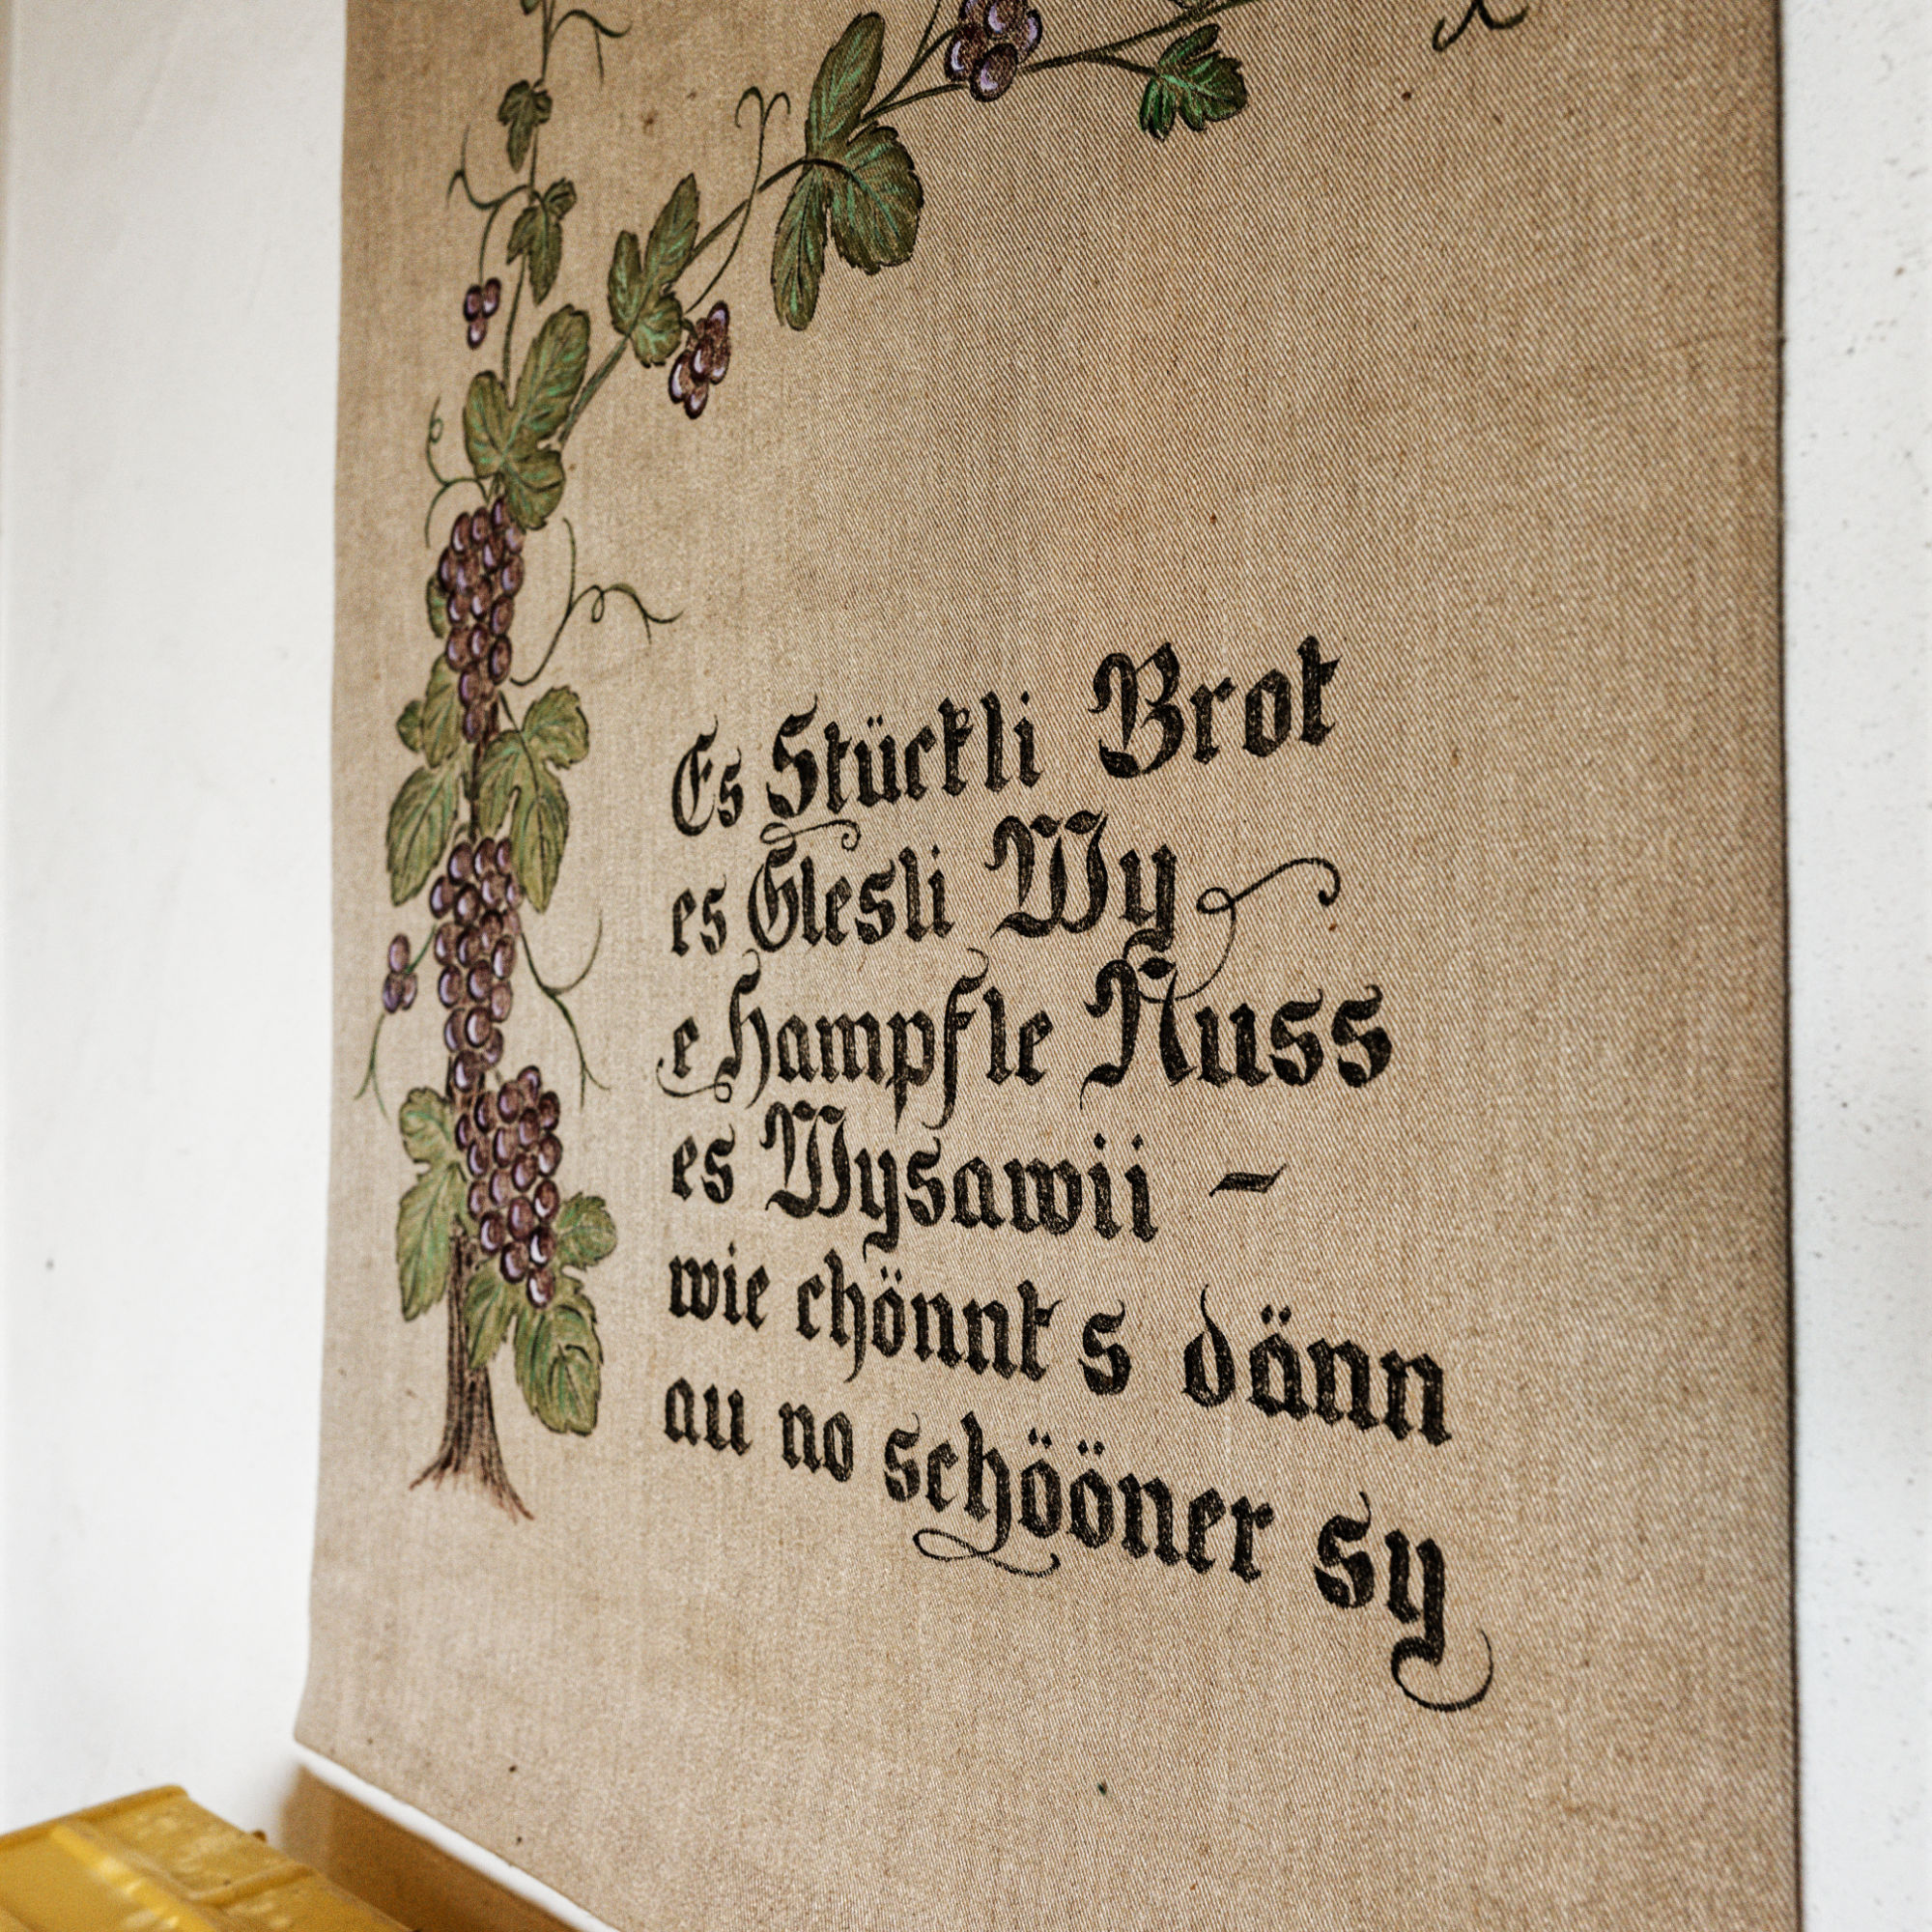 Es Stückli Brot
es Glesli Wy
e Hampfle Nuss
es Wysawii –
wie chönnt s dänn
au no schööner sy